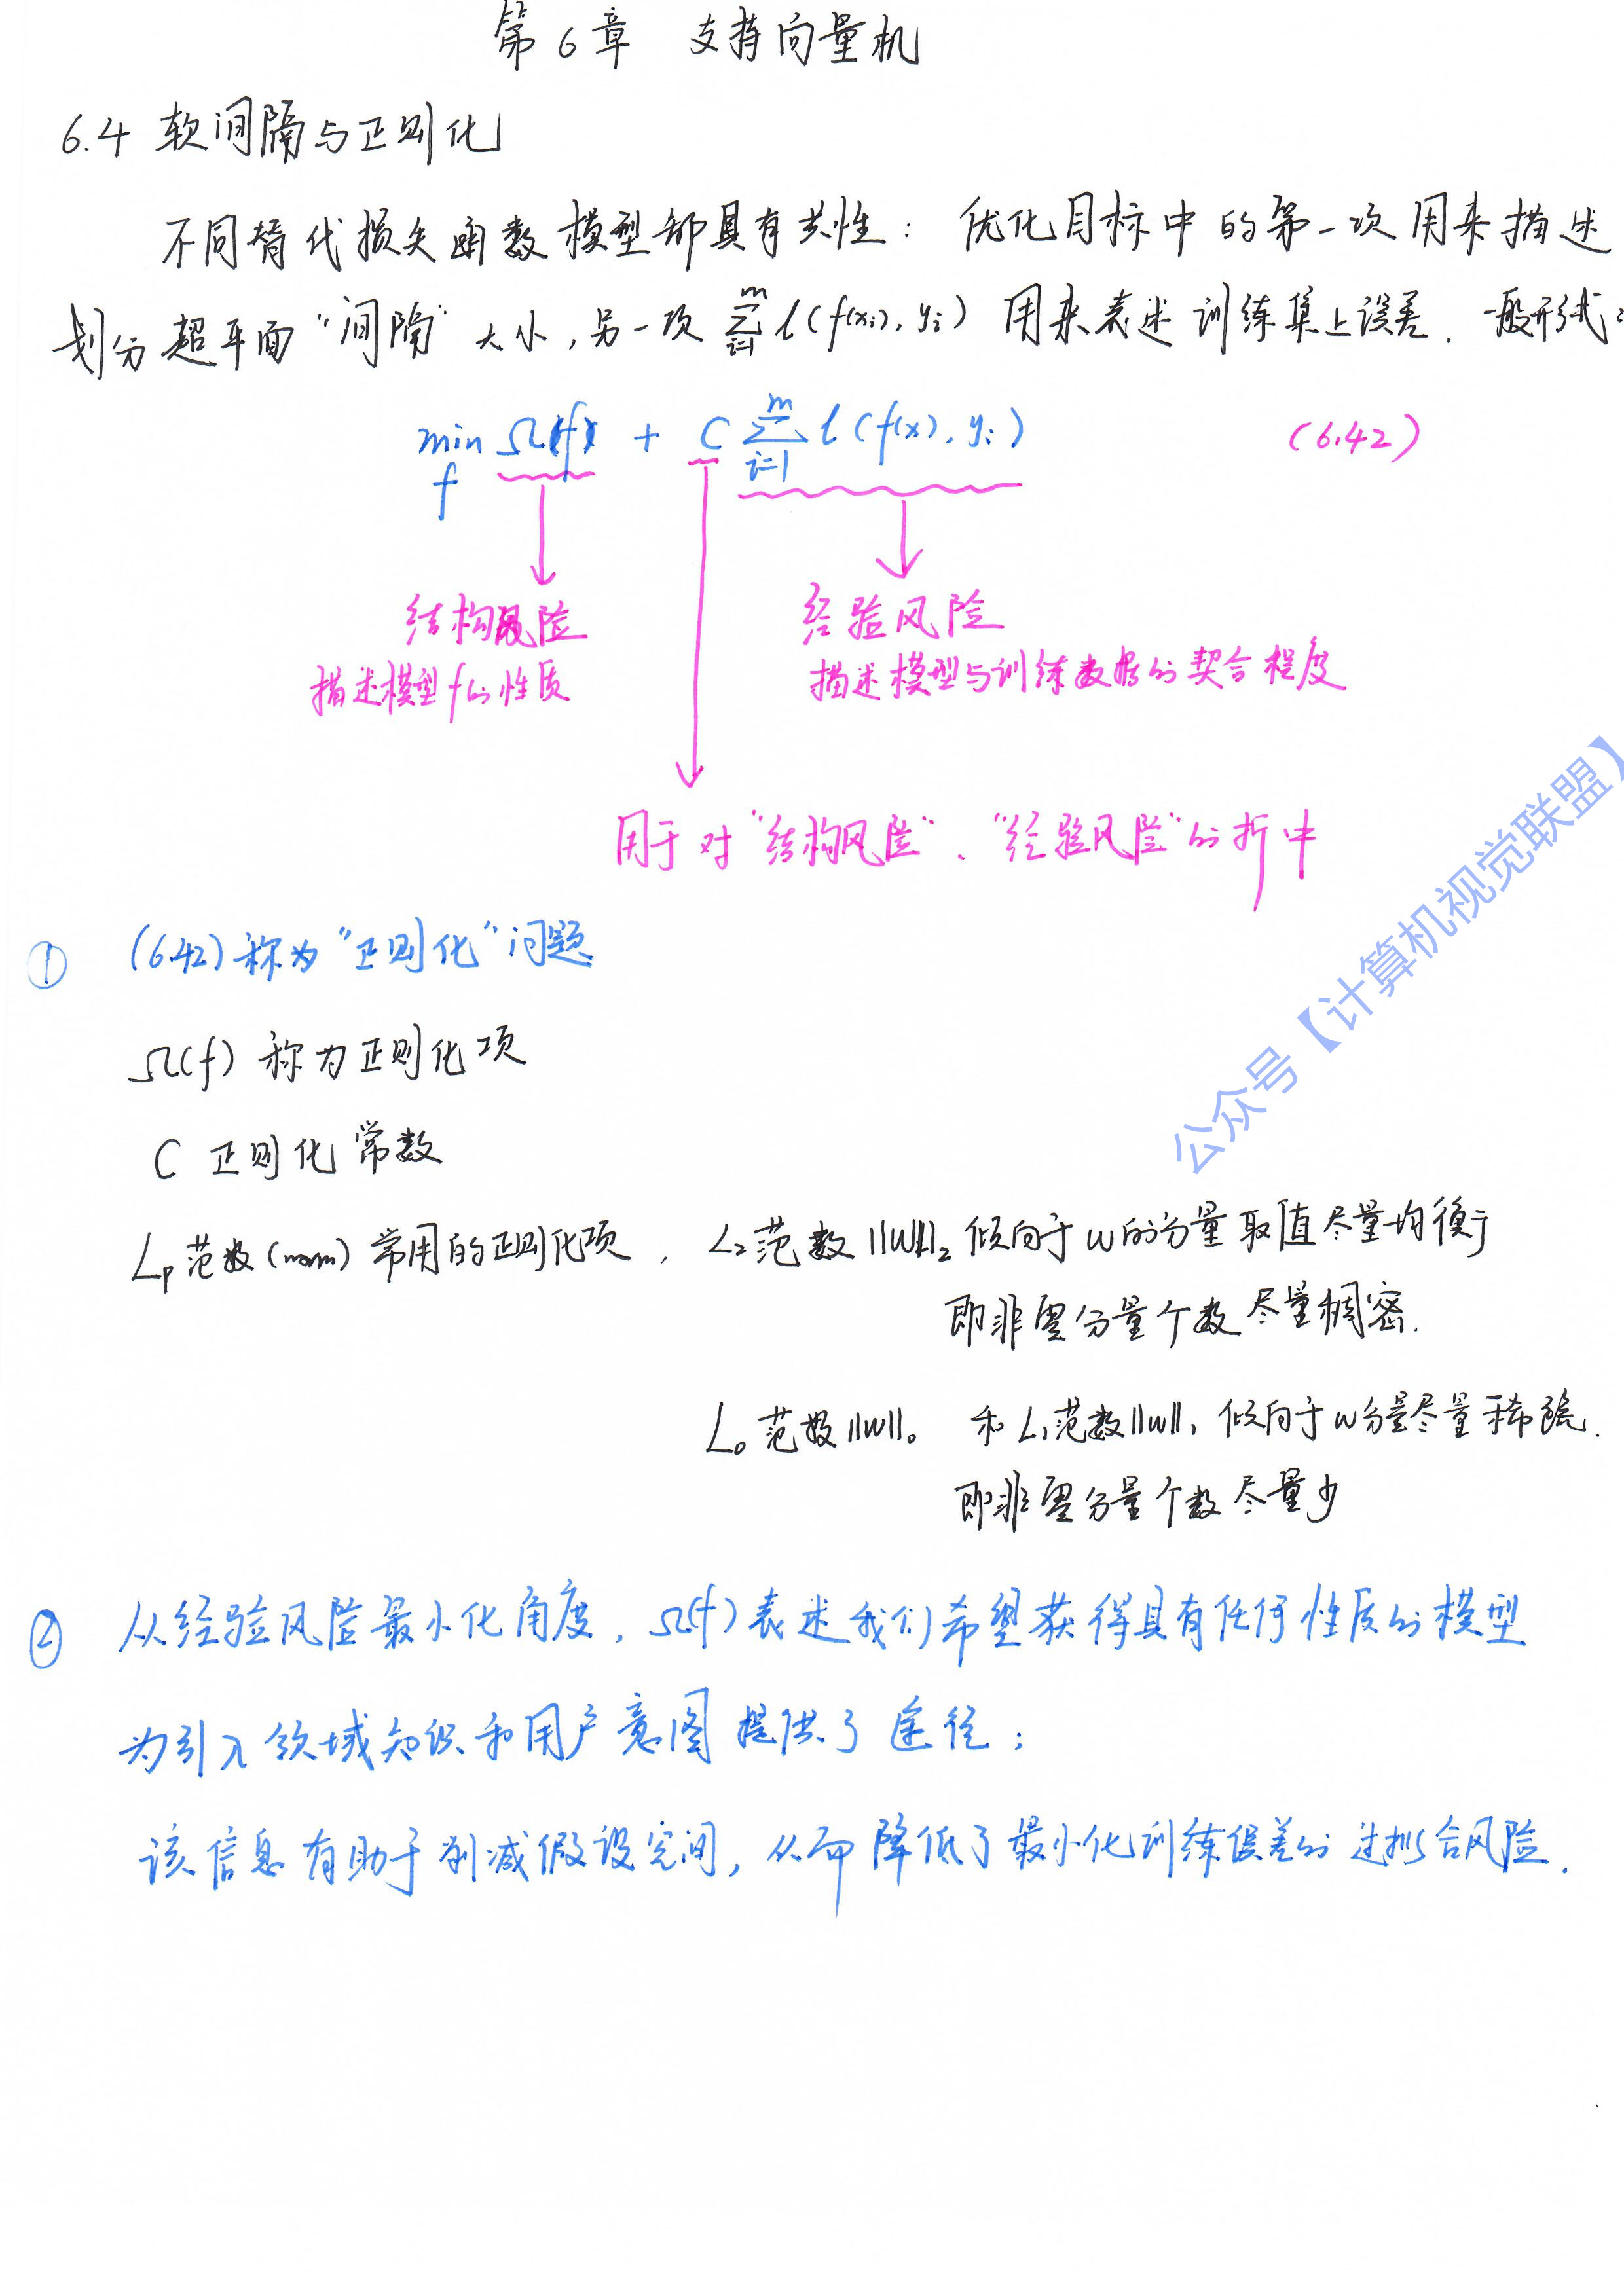 第6章 支持向量机
6.4 软间隔与正则化
不同替代损失函数模型都具有共性: 优化目标中的第一次用来描述
划分超平面“间隔”大小, 另一项 ∑_{i=1}^{m} l(f(x_i), y_i) 用来表述训练集上误差. 一般形式:
min_f Ω(f) + C ∑_{i=1}^{m} l(f(x), y_i) (6.42)
结构风险 经验风险
描述模型f的性质 描述模型与训练数据的契合程度
用于对“结构风险”、“经验风险”的折中
① (6.42)称为“正则化”问题
Ω(f) 称为正则化项
C 正则化常数
L_p范数(norm) 常用的正则化项, L_2范数 ||W||_2 倾向于w的分量取值尽量均衡
即非零分量个数尽量稠密.
L_0范数||W||_0 和L_1范数||W||_1 倾向于w分量尽量稀疏.
即非零分量个数尽量少
② 从经验风险最小化角度, Ω(f)表述我们希望获得具有任何性质的模型
为引入领域知识和用户意图提供了途径;
该信息有助于削减假设空间, 从而降低了最小化训练误差的过拟合风险.
公众号【计算机视觉联盟】